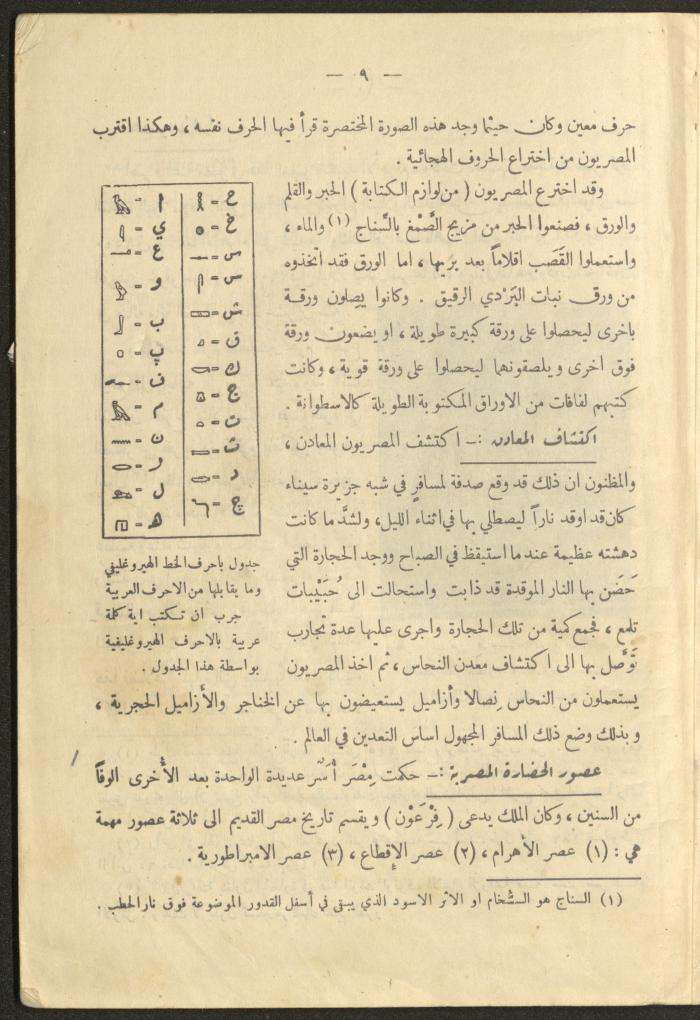 — ٩ —
حرف معين وكان حيثما وجد هذه الصورة المختصرة قرأ فيها الحرف نفسه ، وهكذا اقترب
المصريون من اختراع الحروف الهجائية .
وقد اخترع المصريون ( من لوازم الكتابة ) الحبر والقلم
والورق ، فصنعوا الحبر من مزيج الصَّمْغ بالسِّناج (١) والماء ،
واستعملوا القَصَب اقلاماً بعد بريها ، اما الورق فقد اتخذوه
من ورق نبات البَرْدي الرقيق . وكانوا يصِلون ورقة
باخرى ليحصلوا على ورقة كبيرة طويلة ، او يضعون ورقة
فوق اخرى ويلصقونهما ليحصلوا على ورقة قوية ، وكانت
كتبهم لفافات من الاوراق المكتوبة الطويلة كالاسطوانة .
اكتشاف المعادن :– اكتشف المصريون المعادن ،
والمظنون ان ذلك قد وقع صدفة لمسافرٍ في شبه جزيرة سيناء
كان قد اوقد ناراً ليصطلي بها في اثناء الليل ، ولشدَّ ما كانت
دهشته عظيمة عندما استيقظ في الصباح ووجد الحجارة التي
حَصَن بها النار الموقدة قد ذابت واستحالت الى حُبَيْبات
تلمع ، فجمع كمية من تلك الحجارة واجرى عليها عدة تجارب
تَوَّصل بها الى اكتشاف معدن النحاس ، ثم اخذ المصريون
يستعملون من النحاس نِصالا وأزاميل يستعيضون بها عن الخناجر والأزاميل الحجرية ،
وبذلك وضع ذلك المسافر المجهول اساس التعدين في العالم .
عصور الحضارة المصرية :– حكمت مِصْرَ أُسَر عديدة الواحدة بعد الأُخرى الوفاً
من السنين ، وكان الملك يدعى ( فِرْعَوْن ) ويقسم تاريخ مصر القديم الى ثلاثة عصور مهمة
هي : (١) عصر الأهرام ، (٢) عصر الإقطاع ، (٣) عصر الامبراطورية .
(١) السناج هو السُّخام او الاثر الاسود الذي يبقى في أسفل القدور الموضوعة فوق نار الحطب .
ح =
خ =
س =
س =
ش =
ق =
ك =
ج =
ت =
ث =
د =
چ =
ا =
ي =
ع =
و =
ب =
پ =
ف =
م =
ن =
ر =
ل =
ه =
جدول باحرف الخط الهيروغليفي
وما يقابلها من الاحرف العربية
جرب ان تكتب اية كلمة
عربية بالاحرف الهيروغليفية
بواسطة هذا الجدول .